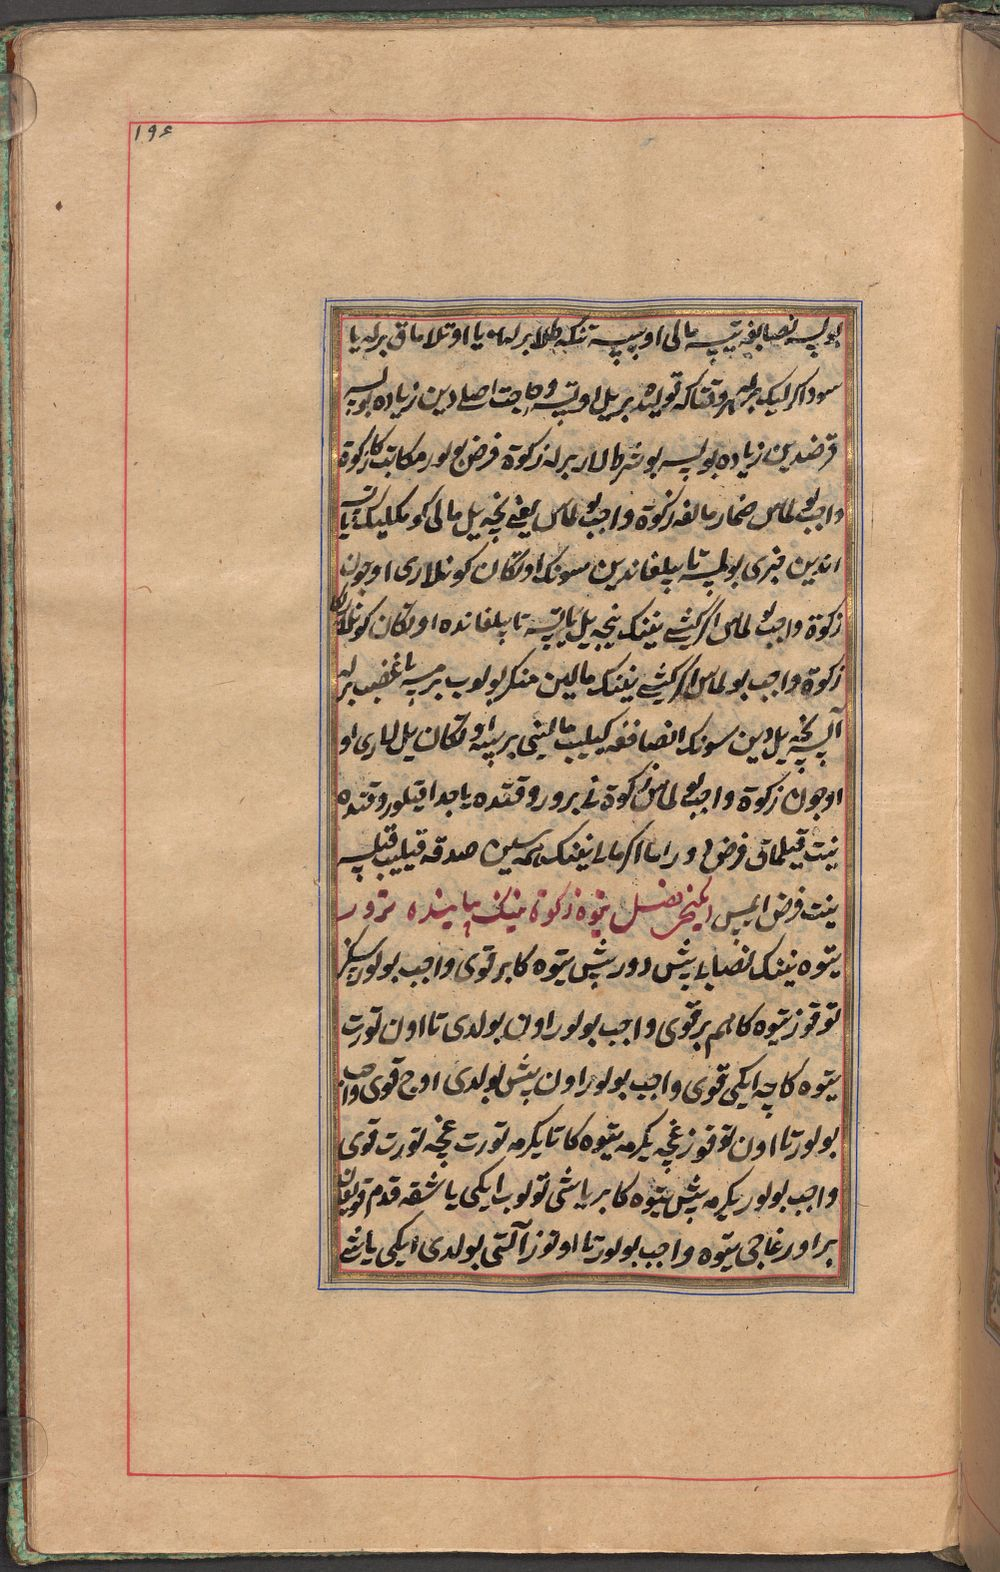 ۱۹۶
بولسه نصابغه یتیپ مالی اوسسه تنکه طلا برله یا اوتلاماق برله یا
سوداکرلیک برله هر وقتاکه تولیده بریل اوتسه و حاجت اصلدین زیاده بولسه
قرضدین زیاده بولسه بو شرطلار برله زکوة فرض بولور مکاتب کا زکوة
واجب بولماس ضمار مالغه زکوة واجب بولماس یعنی نچه ییل مالی کومکلیک یاتسه
اندین خبری بولسه تاپیلغاندین سونک اوتکان کونلاری اوچون
زکوة واجب بولماس اکر کیشی نینک نچه ییل یاتسه تاپیلغانده اوتکان کونلار
زکوة واجب بولماس اکر کیشی نینک مالین منکر بولوب برمسه یا غضب برله
آلسه نچه ییلدین سونک انصافغه کیلیب مالینی برسه اوتکان ییللاری
اوچون زکوة واجب بولماس زکوة نی برور وقتده یا جدا قیلور وقتده
نیت قیلماق فرض دور اما اکر مالی نینک همه سین صدقه قیلیب قیلسه
نیت فرض ایمس ایکینجی فصل تیوه زکوة نینک بیانیده تورور
تیوه نینک نصابی بیش دور بیش تیوه کا بر قوی واجب بولور سکز
توقوز تیوه کا هم بر قوی واجب بولور اون بولدی تا اون تورت
تیوه کاچه ایکی قوی واجب بولور اون بیش بولدی اوچ قوی واجب
بولور تا اون توقوز غچه یکرمه تیوه کا تا یکرمه تورت غچه تورت قوی
واجب بولور یکرمه بیش تیوه کا بر یاشی تولوب ایکی یاشقه قدم قویغان
بر اورغاجی تیوه واجب بولور تا اوتوز آلتی بولدی ایکی یاشی